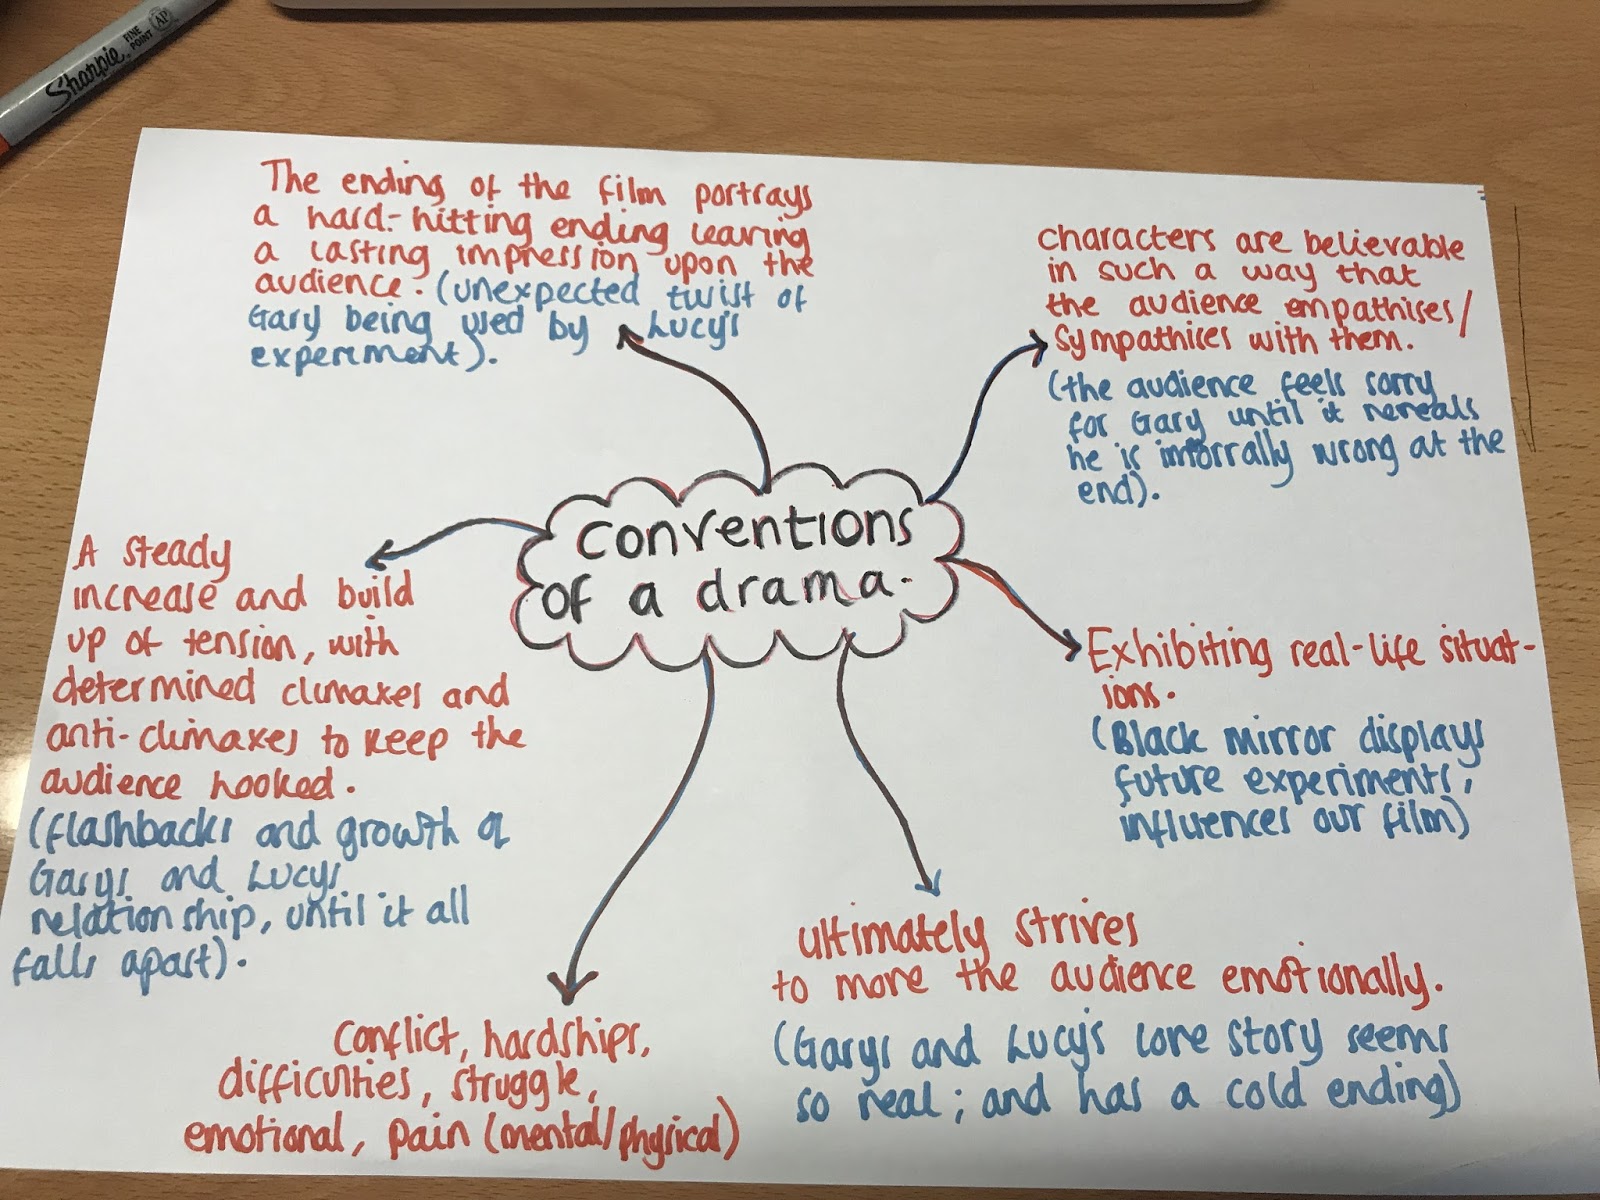 Sharpie
FINE
POINT
AP
The ending of the film portrays
a hard-hitting ending leaving
a lasting impression upon the
audience. (unexpected twist of
Gary being used by Lucy's
experiment).
characters are believable
in such a way that
the audience empathises/
sympathises with them.
(the audience feels sorry
for Gary until it reveals
he is immorrally wrong at the
end).
conventions
of a drama.
A steady
increase and build
up of tension, with
determined climaxes and
anti-climaxes to keep the
audience hooked.
(flashbacks and growth of
Garys and Lucys
relationship, until it all
falls apart).
Exhibiting real-life situat-
ions.
(Black mirror displays
future experiments,
influences our film)
ultimately strives
to move the audience emotionally.
(Garys and Lucy's love story seems
so real; and has a cold ending)
Conflict, hardships,
difficulties, struggle,
emotional, pain (mental/physical)